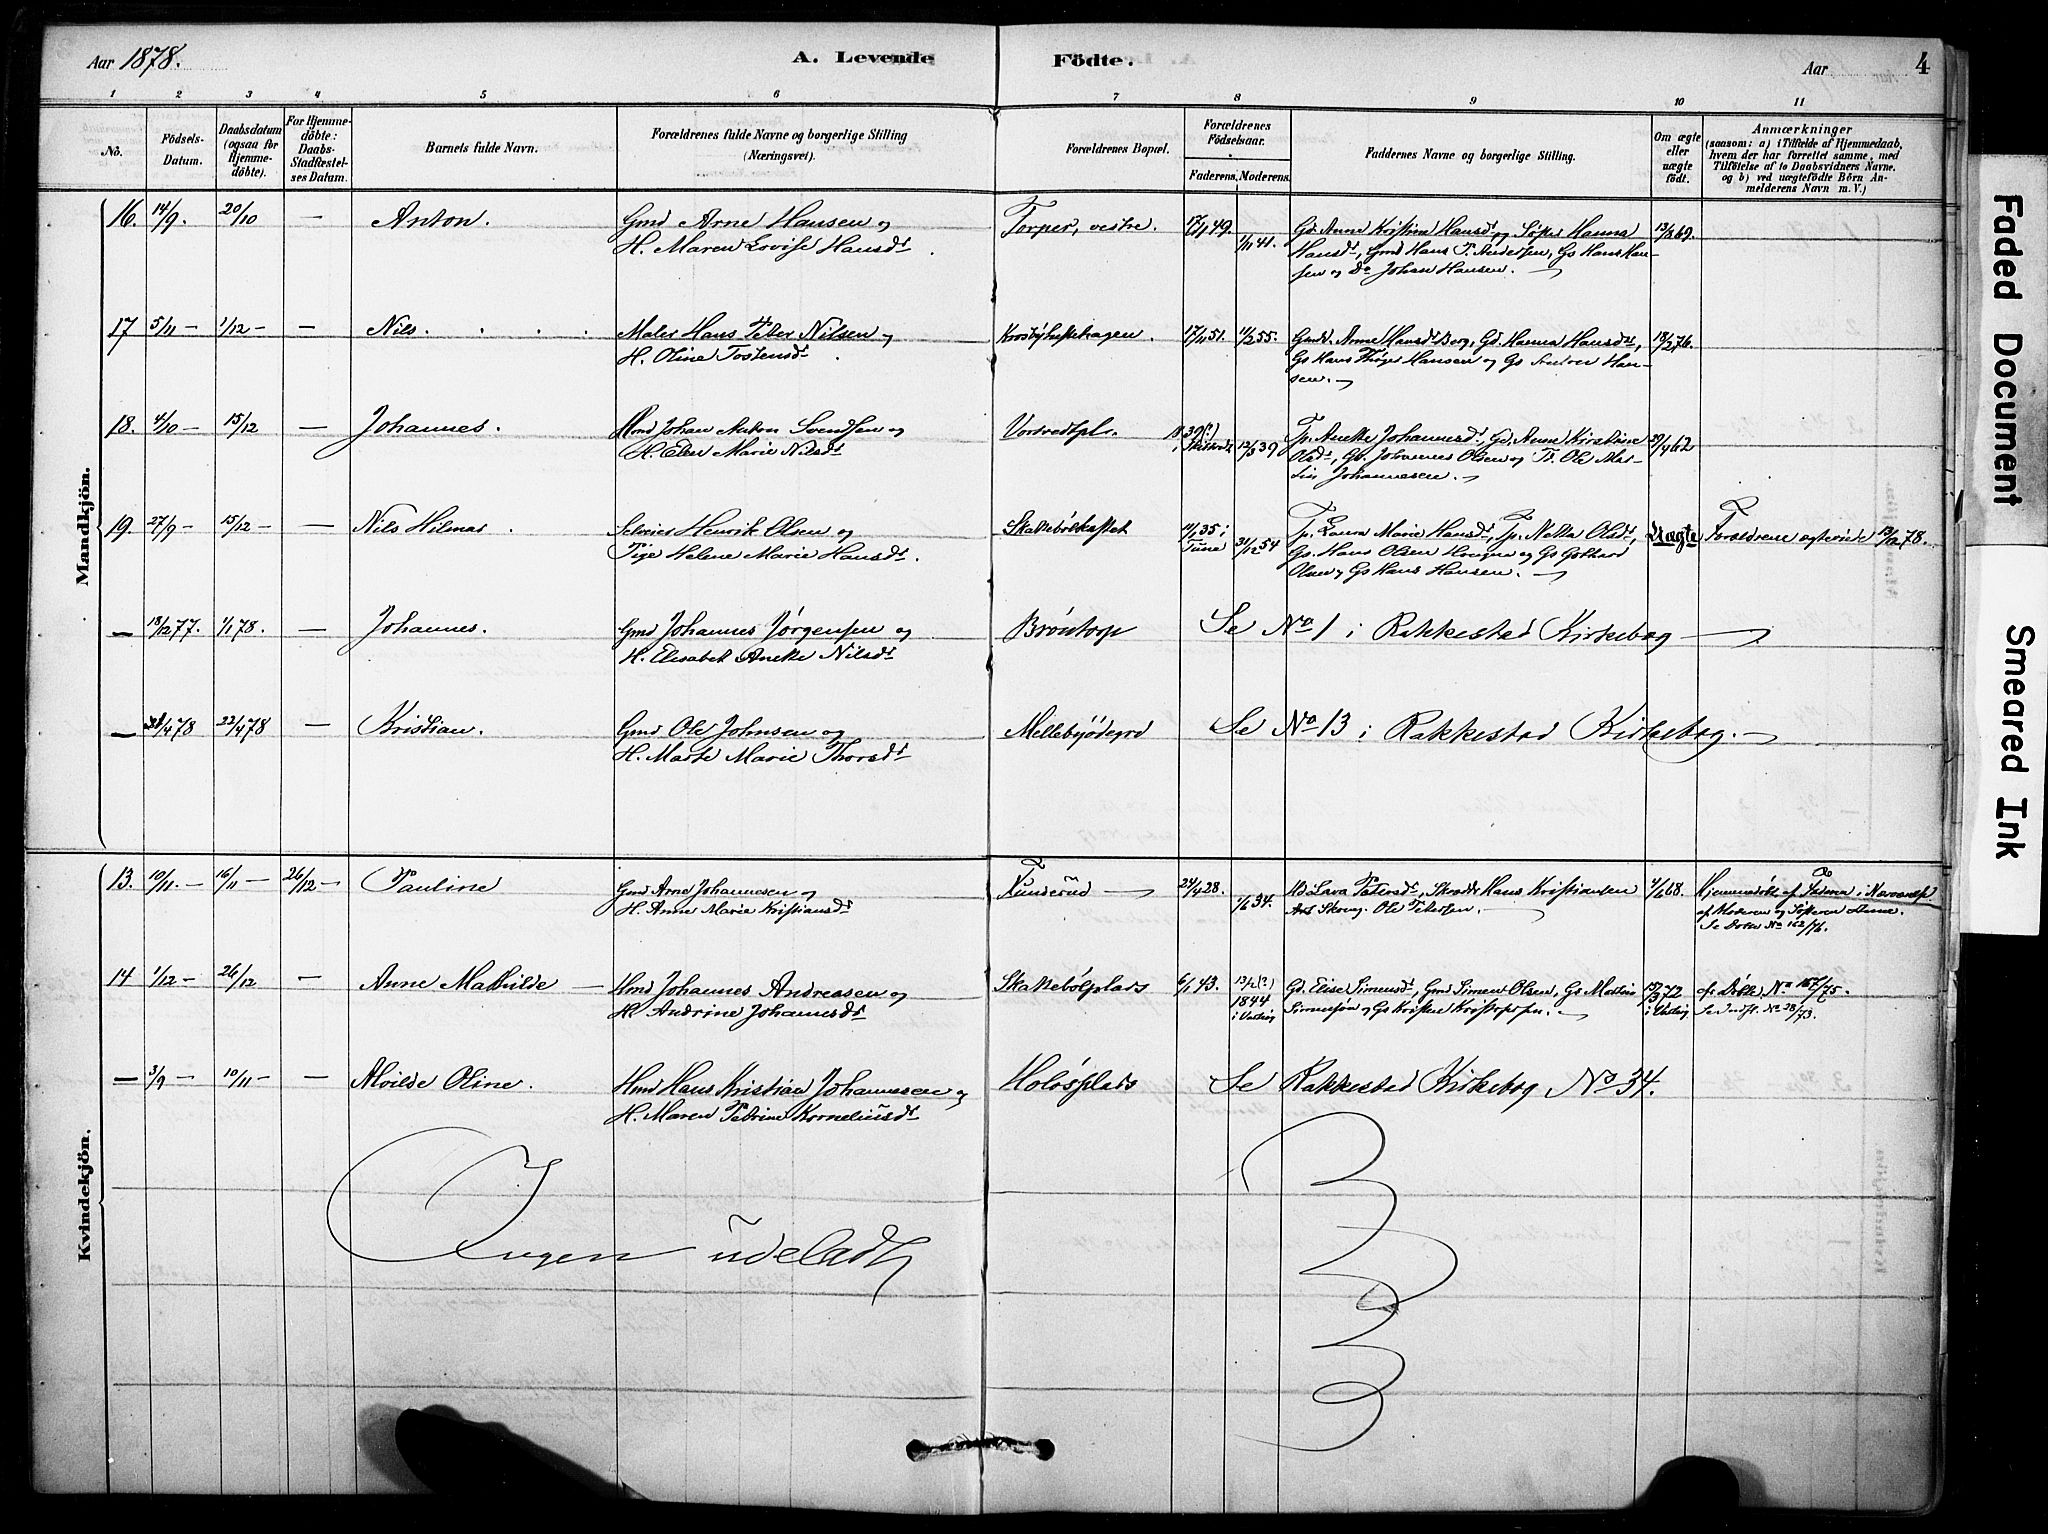 Aar 1878.
A. Levende
Födte.
Aar
4
1 2 3 4 5 6 7 8 9 10 11
No.
Födsels-
Datum.
Daabsdatum
(ogsaa for
Hjemme-
döbte).
For Hjemme-
döbte:
Daabs-
Stadfæstel-
ses Datum.
Barnets fulde Navn.
Forældrenes fulde Navne og borgerlige Stilling
(Næringsvei).
Forældrenes Bopæl.
Forældrenes
Födselsaar.
Faderens. Moderens.
Faddernes Navne og borgerlige Stilling.
Om ægte
eller
uægte
födt.
Anmærkninger
(saasom: a) i Tilfælde af Hjemmedaab,
hvem der har forrettet samme, med
Tilföielse af to Daabsvidners Navne.
og b) ved uægtefödte Börn An-
melderens Navn m. V.)
Mandkjön.
16. 14/9. 20/10 — Anton. Gmd Arne Hansen og
H. Maren Lovise Hansdt.
Torper, vestre. 17/1 49. 1/11 41. Gd. Anne Kristine Hansdt, og Søster Hanna
Hansdt, Gmd Hans T. Andersen, Gs Hans Han-
sen og Do Johan Hansen. 13/8 69.
17 5/11 — 1/12 — — Nils. Maler Hans Peter Nilsen og
H. Oline Tostensdt.
17/11 51. 11/2 55. Gmdk. Anne Hansdt Berg, Gd. Hanna Hansdt,
Gs Hans Thøger Hansen og Gs Anton Han-
sen. 18/2 76.
18. 4/10 — 15/12 — Johannes. Hmd Johan Anton Svendsen og
H. Elen Marie Nilsdt
39(?) 12/3 39 Tp. Anette Johannesdt, Gd. Anne Kirstine
Olsdt, Gs. Johannes Olsen og Ts. Ole Mar-
tin Johannesen. 29/4 62
19. 27/9 — 15/12 — — Nils Hilmar. Selveier Henrik Olsen og
Pige Helene Marie Hansdt.
11/1 35 i
Tune 31/12 54 Tp. Laura Marie Hansdt, Tp. Netta Olsdt,
Gs. Hans Olsen og Gs Gothard
Olsen og Gs Hans Hansen. Uægte Forældrene ægteviede 13/12 78.
— 18/12 77. 1/1 78. — Johannes. Gmd Johannes Jörgensen og
H. Elisabet Anette Nilsdt
Bröntorp Se No 1 i Rakkestad Kirkebog
— 4 78 22/4 78 — Kristian. Gmd Ole Johnsen og
H. Marte Marie Thorsdt
Mellebyödegrd Se No 13 i Rakkestad Kirkebog.
Kvindekjön.
13. 10/11. — 16/11 — 26/12 — Pauline Gmd Arne Johannesen og
H. Anne Marie Kristiansdt
Funderud 24/4 28. 1/6 34. Petersdt, Hans Kristiansen
Ole Petersen. 4/1 68. Hjemmedöbt af Faderen i
af Moderen og Søsteren Anne.
Se Döbte No 162/76.
14 1/12 — 26/12 — Anne Mathilde — Hmd Johannes Andreasen og
H. Andrine Johannesdt
Skattebölplads 6/1 43. 13/2(?)
1844 Gd. Elise Simensdt, Gmd Simen Olsen, Gs Martin
Simensön og Gs Kristen Kristoffersen. 72 cfr Döbte No 167/75.
No 28/73.
— 3/9 — 10/11 — — Alvilde Oline. Hmd Hans Kristian Johannesen og
H. Maren Petrine Korneliusdt
Holösplads Se Rakkestad Kirkebog No 34.
Ingen udeladt
Faded Document
Smeared Ink